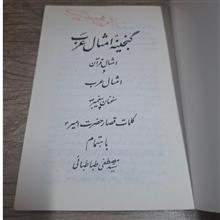 گنجینهٔ امثال عرب
امثال قرآن
و
امثال عرب
سخنان پیغمبر
کلمات قصار حضرت امیر
باهتمام
سید مصطفی طباطبائی